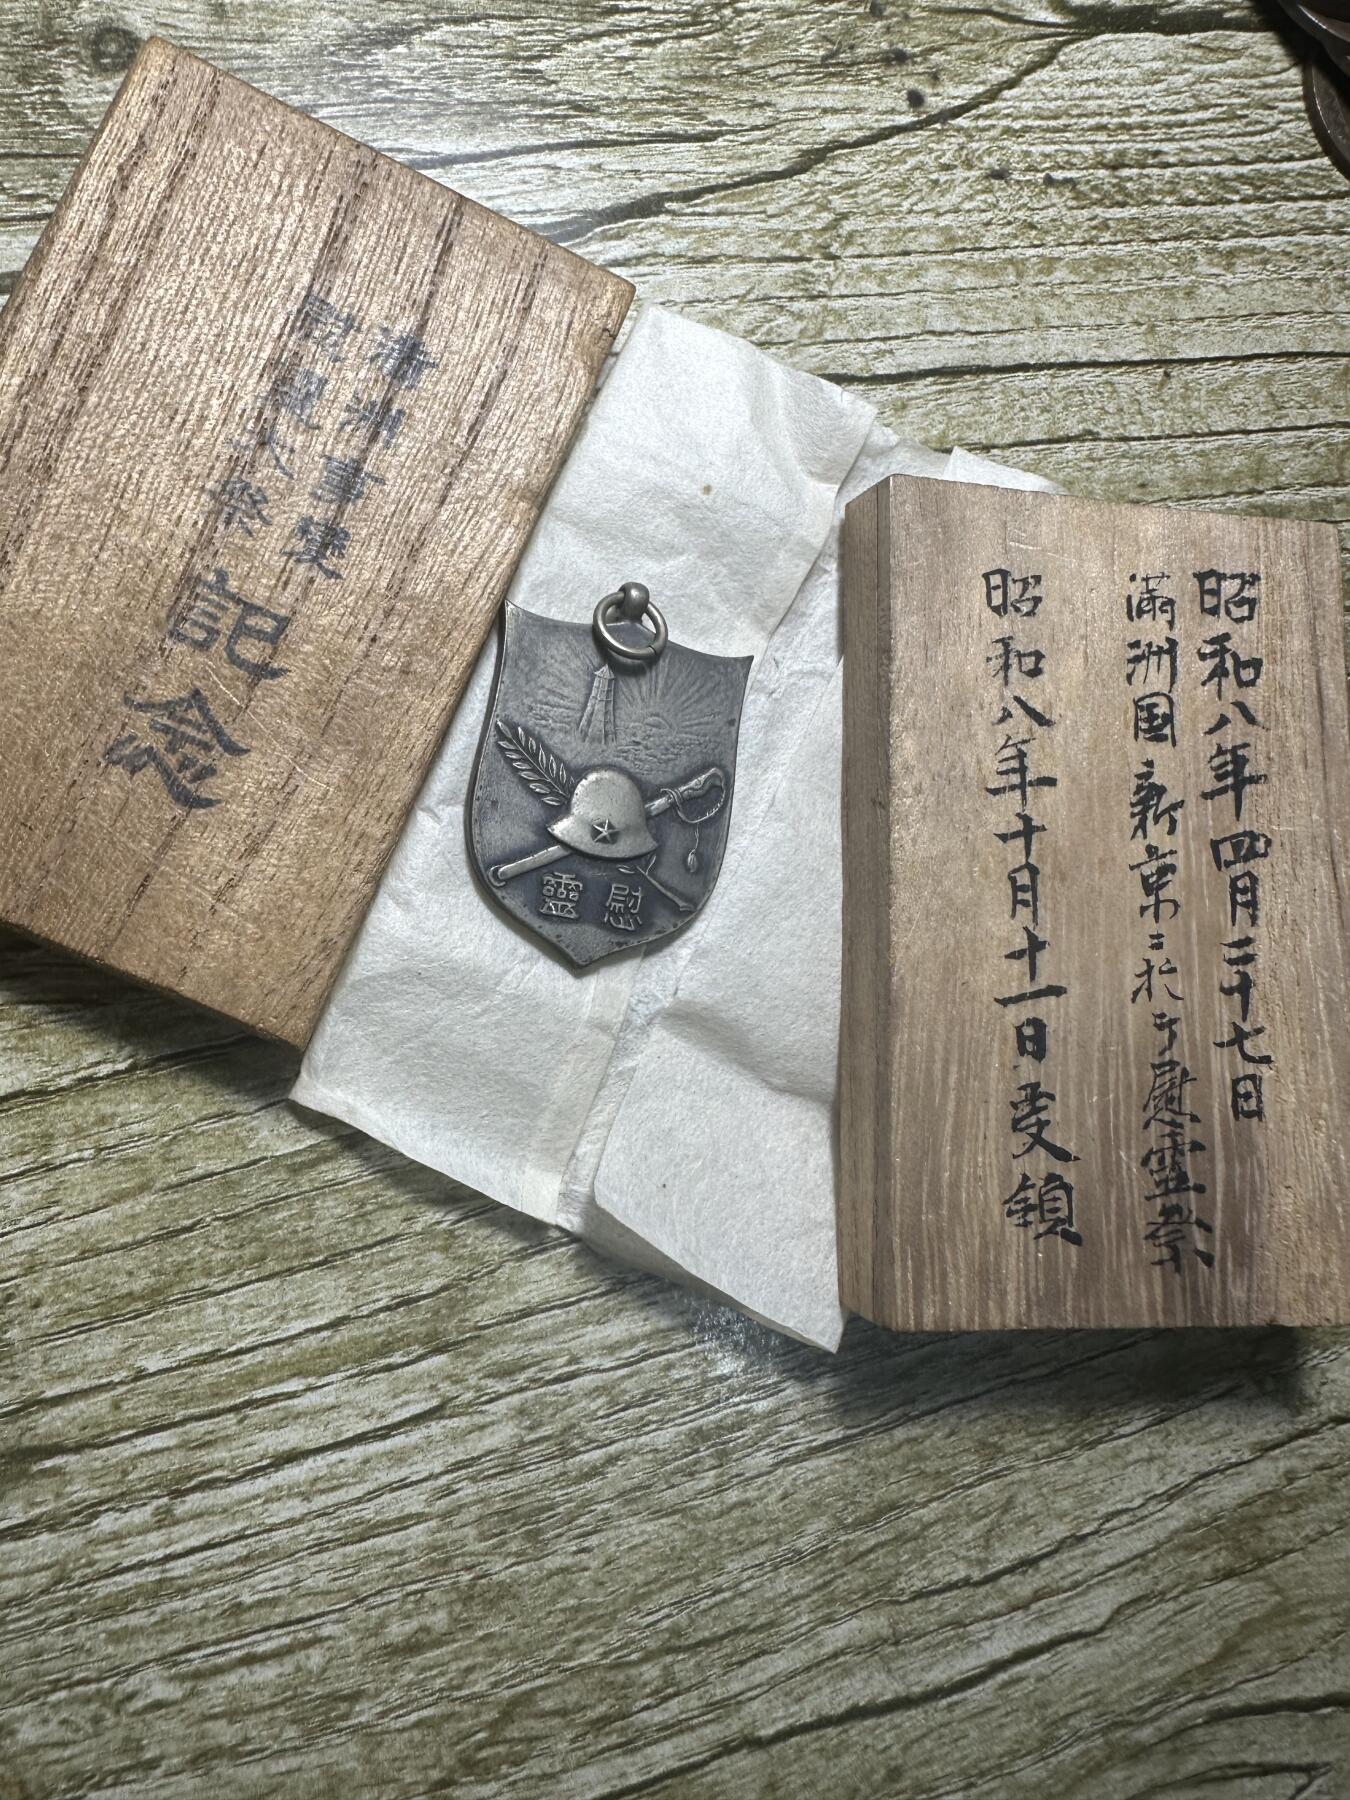 滿洲事變
慰靈大祭
記念
慰靈
昭和八年四月二十七日
滿洲国新京ニ於テ慰霊祭
昭和八年十月十一日受領